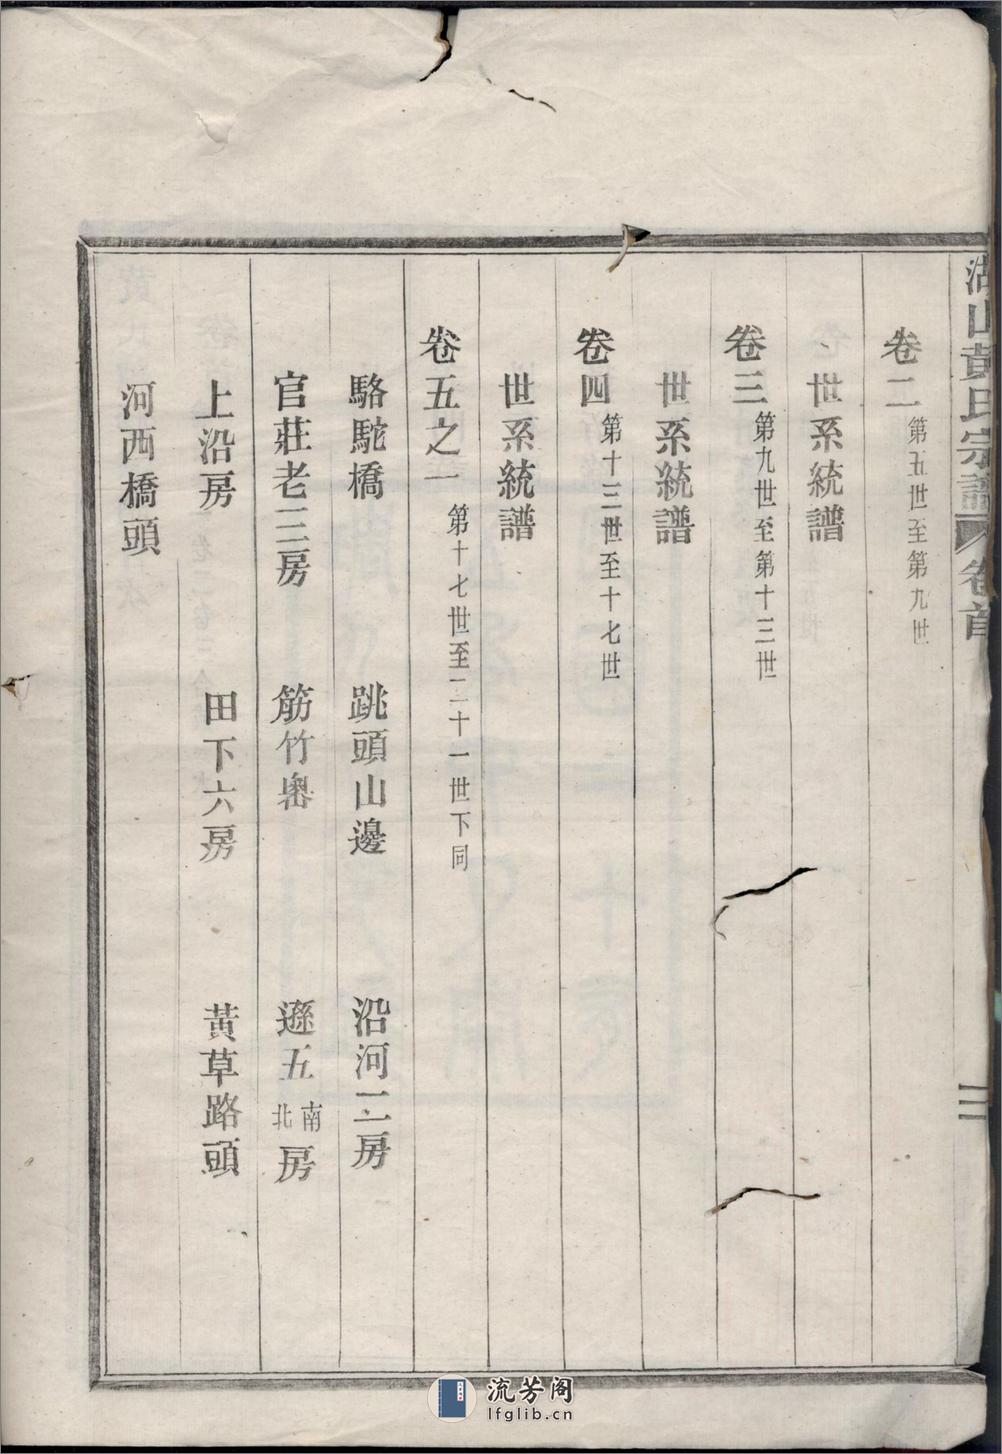 湖山黃氏宗譜 卷首 二
卷二 第五世至第九世
世系統譜
卷三 第九世至第十三世
世系統譜
卷四 第十三世至十七世
世系統譜
卷五之一 第十七世至二十一世下同
駱駝橋 跳頭山邊 沿河二房
官莊老三房 筋竹嶴 遜五南北房
上沿房 田下六房 黃草路頭
河西橋頭
流芳阁
lfglib.cn